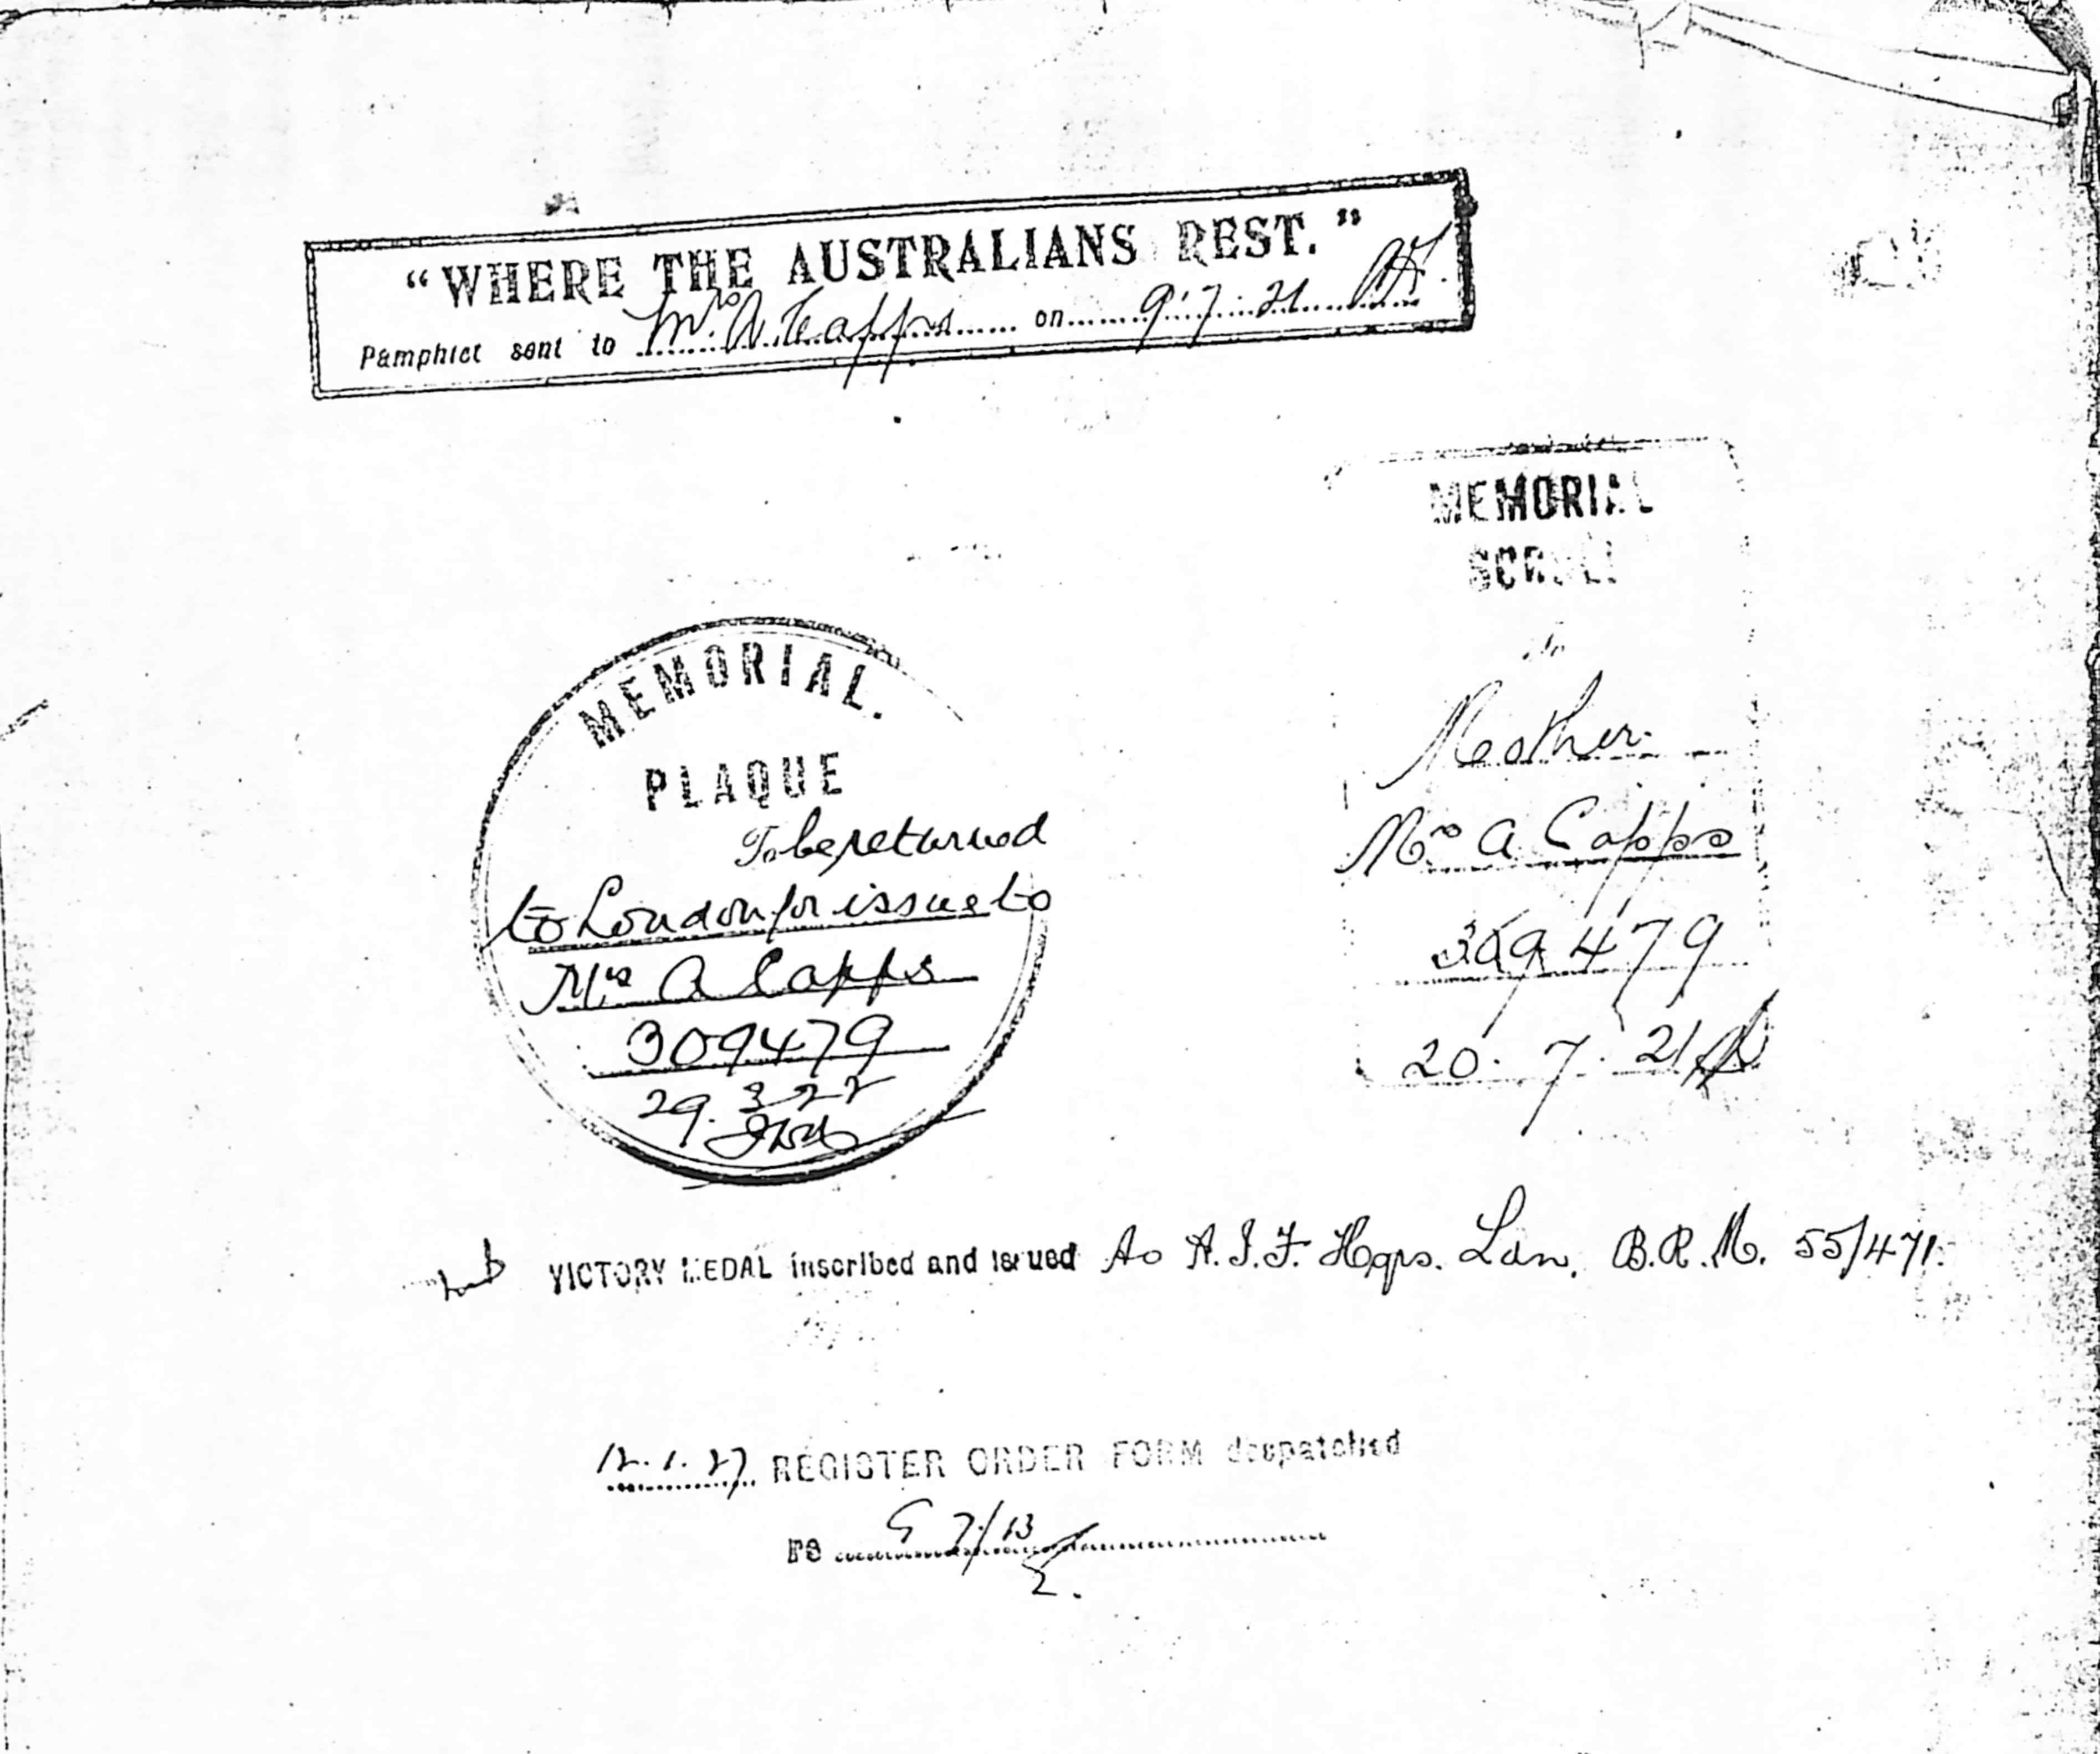 "WHERE THE AUSTRALIANS REST."
Pamphlet sent to Mrs. A. Capps on 9.7.21
MEMORIAL
SCROLL
Mother
Mrs A Capps
309479
20.7.21
MEMORIAL.
PLAQUE
To be returned
to London for issue to
Mrs A Capps
309479
29.3.22
VICTORY MEDAL inscribed and issued to A.I.F. Hqrs. Ldn. B.R.M. 55/471.
12.1.27 REGISTER ORDER FORM despatched
re G 7/13